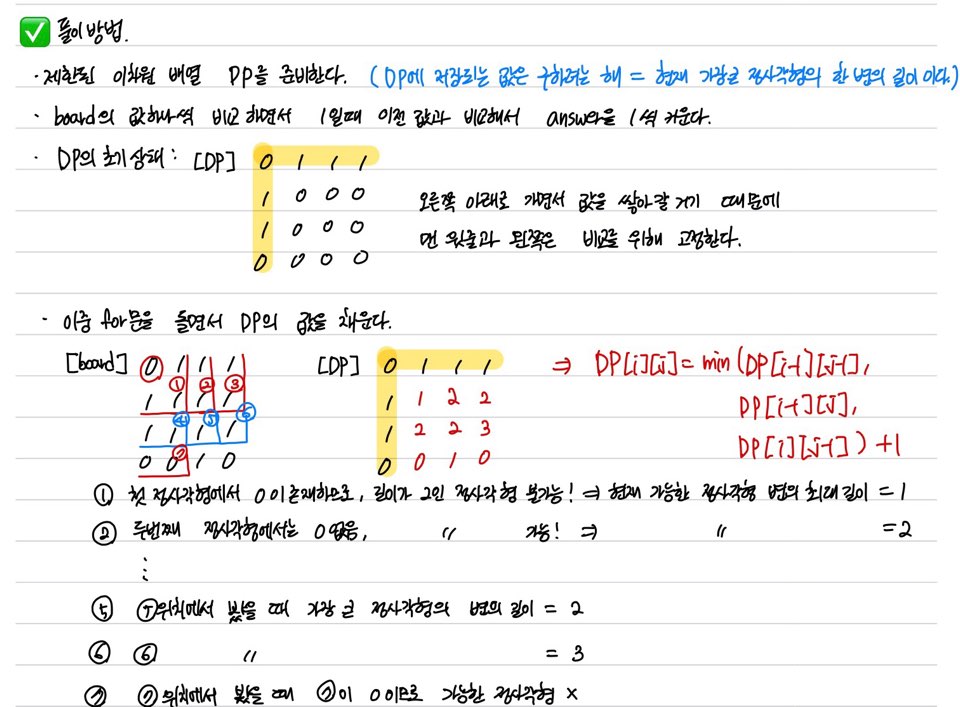 ✅ 풀이 방법.
· 제한된 이차원 배열 DP를 준비한다. (DP에 저장되는 값은 구하려는 해 = 현재 가장 큰 정사각형의 한 변의 길이 이다.)
· board의 값하나씩 비교 하면서 1일때 이전 값과 비교해서 answer을 1씩 키운다.
· DP의 초기 상태 : [DP] 0 1 1 1
1 0 0 0
1 0 0 0
0 0 0 0
오른쪽 아래로 가면서 값을 쌓아갈 거기 때문에
맨 윗줄과 왼쪽은 비교를 위해 고정한다.
· 이중 for문을 돌면서 DP의 값을 채운다.
[board] 0 1 1 1
① ② ③
1 1 1 1
④ ⑤ ⑥
1 1 1 1
⑦
0 0 1 0
[DP] 0 1 1 1
1 1 2 2
1 2 2 3
0 0 1 0
⇒ DP[i][j] = min (DP[i-1][j-1],
DP[i-1][j],
DP[i][j-1]) + 1
① 첫 정사각형에서 0이 존재하므로, 길이가 2인 정사각형 불가능! ⇒ 현재 가능한 정사각형 변의 최대 길이 = 1
② 두번째 정사각형에서는 0 없음, 〃 가능! ⇒ 〃 = 2
⋮
⑤ ⑤위치에서 봤을 때 가장 큰 정사각형의 변의 길이 = 2
⑥ ⑥ 〃 = 3
⑦ ⑦위치에서 봤을 때 ⑦이 0이므로 가능한 정사각형 ×